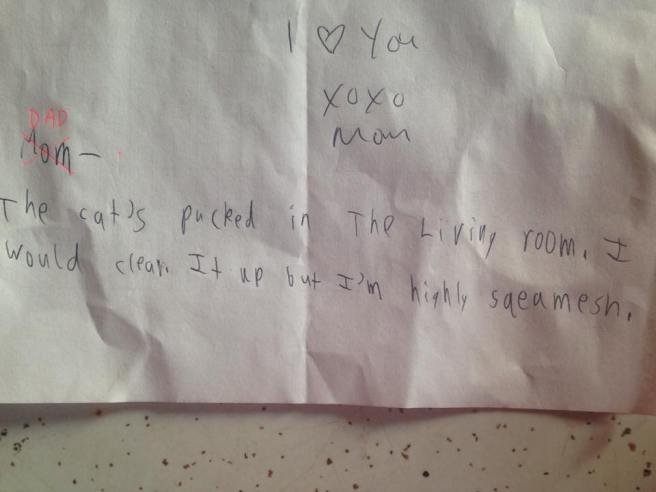 I ♡ You
XOXO
Mom
DAD
Mom –
The cat's pucked in The Living room. I
would clean It up but I'm highly sqeamesh.